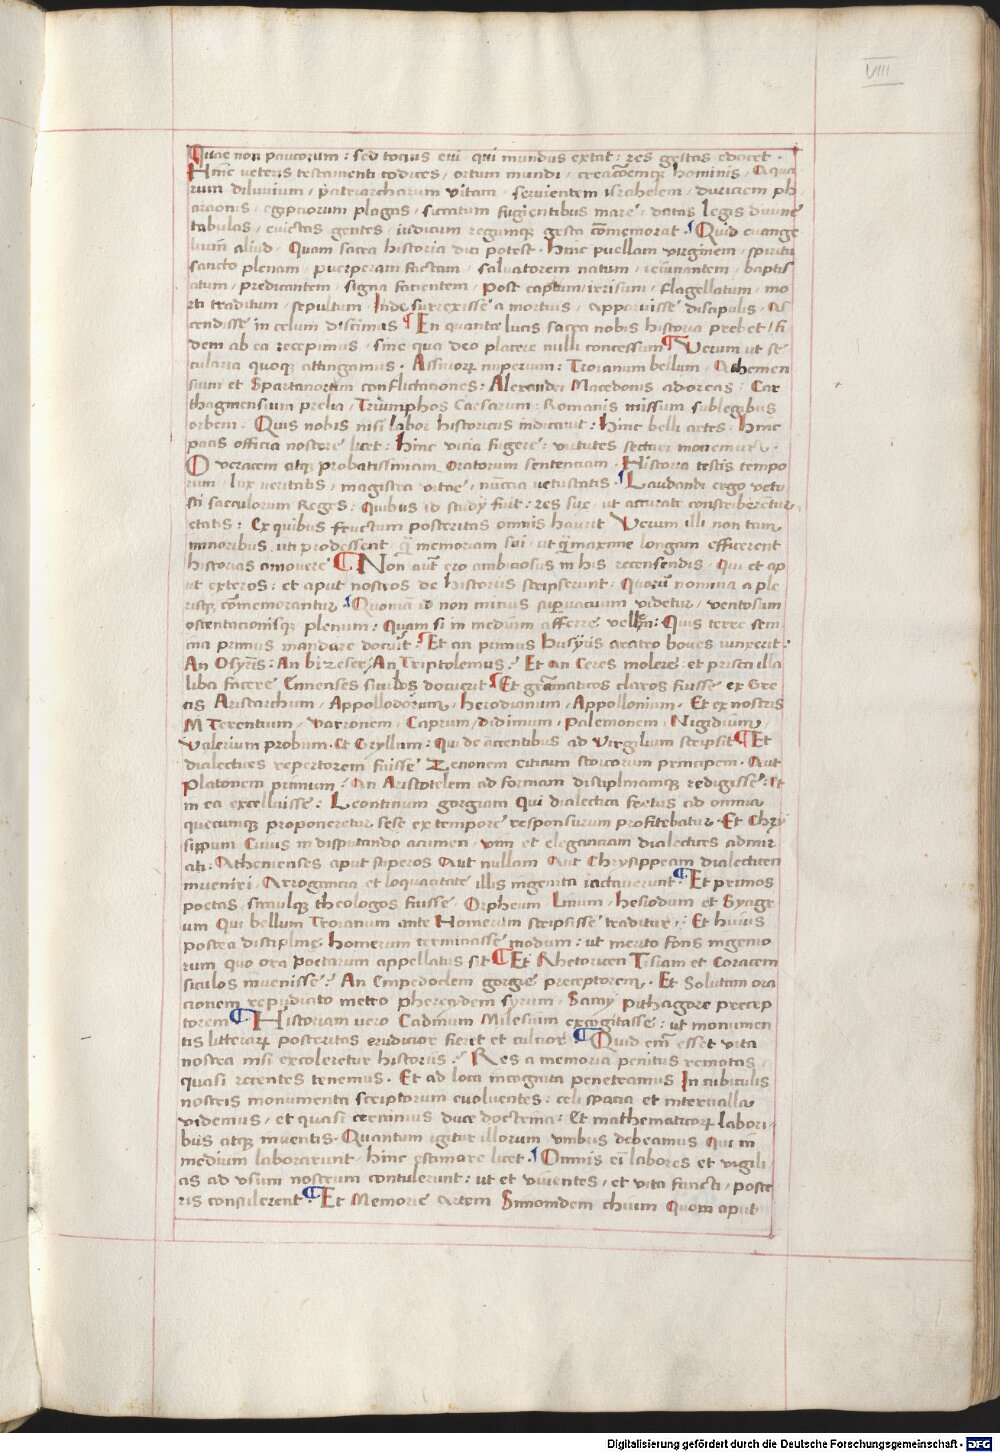 VIII
Quae non paucorum : sed totius evi · qui mundus extat : res gestas edocet ·
Hinc veteris testamenti codices / ortum mundi / creacōemq; hominis / Aqua
rum diluvium / patriarcharum vitam / servientem israhelem / duriciem ph
araonis / egiptiorum plagas / siccatum fugientibus mare / datas legis divine
tabulas / evictas gentes / iudicum regumq; gesta cōmemorat · Quid evange
lium aliud / Quam sacra historia dici potest · Hinc puellam virginem / spiritu
sancto plenam / puerperam factam / salvatorem natum / ieiunantem / baptis
atum / predicantem / signa facientem / post captum / irrisum / flagellatum / mo
rti traditum / sepultum / Inde surrexisse a mortuis / apparuisse discipulis / As
cendisse in celum discimus ¶ En quanta lucis sacra nobis historia prebet / fi
dem ab ea recepimus / sine qua deo placere nulli concessum ¶ Verum ut se
cularia quoq; attingamus · Assiriorꝝ imperium : Troianum bellum / Athenien
sium et Spartanorum conflictationes : Alexandri Macedonis adoreas : Car
thaginensium prelia / Triumphos Caesarum : Romanis missum sub legibus
orbem · Quis nobis nisi labor historicus indicavit : hinc belli artes · hinc
pacis officia nostere licet : hinc vicia fugere : virtutes sectari monemur ·
O veracem atq; probatissimam oratorum sentenciam · Historia testis tempo
rum / lux veritatis / magistra vitae / nūccia vetustatis · Laudandi ergo vetu
sti saeculorum Reges : Quibus id study fuit : res sue / ut accurate conscriberentur
etatis : Ex quibus fructum posteritas omnis haurit Verum illi non tam
minoribus uti prodessent q̄ memoriam sui / ut q̄ maxime longam efficerent
historias amovere ¶ Non aūt ero ambiciosus in his recensendis / Qui et ap
ut exteros : et aput nostros de historiis scripserunt · Quorū nomina a ple
risq; cōmemorantur · Quoniā id non minus supervacuum videtur / ventosum
ostentacionisq; plenum : Quam si in medium afferre vellem : Quis terre sem
ina primus mandare docuit : ¶ Et an primus busyris aratro boves iunxerit :
An Osyris : An brizeser : An Triptolemus : Et an Ceres molere : et prisca illa
liba facere Ennenses siculos docuerit ¶ Et grāmaticos claros fuisse ex Gre
cis Aristarchum / Appollodorum / herodianum / Appollonium · Et ex nostris
M Terentium / varronem / Caprum / didimum / palemonem / Nigidium /
Valerium probum · Et Gryllum : Qui de accentibus ad Virgilium scripsit ¶ Et
dialectices repertorem fuisse Zenonem citicum stoicorum principem · Aut
Platonem primum : An Aristotelem ad formam disciplinamq; redigisse : Et
in ea excelluisse : Leontinum gorgiam Qui dialectica fretus ad omnia
quecumq; proponeretur sese ex tempore responsurum profitebatur · Et Chry
sippum Cuius in disputando acumen / vim et eleganciam dialectices admir
ati : Athenienses aput superos Aut nullam Aut Chrysippeam dialecticen
inveniri / Arrogancia et loquacitate illis ingenita iactaverunt · ¶ Et primos
poetas simulq; theologos fuisse Orpheum / Linum / hesiodum et Syagr
um Qui bellum Troianum ante Homerum scripsisse traditur : Et huius
postea discipline homerum terminasse modum : ut merito fons ingenio
rum quo ora poetarum appellatus sit ¶ Et Rhetoricen Tisiam et Coracem
siculos invenisse : An Empedoclem gorgie preceptorem · Et Solutam ora
cionem repudiato metro pherecydem syrum / Samy pithagore precep
torem ¶ Historiam vero Cadmum Milesium excogitasse : ut monumen
tis litterarꝝ posteritas erudicior fieret et culcior ¶ Quid em̄ esset vita
nostra nisi excoleretur historiis : Res a memoria penitus remotas
quasi recentes tenemus · Et ad loca incognita penetramus In cubiculis
nostris monumenta scriptorum evolventes : celi spacia et intervalla
videmus / et quasi cernimus duce doctrina : Et mathematicorꝝ labori
bus atq; inventis · Quantum igitur illorum umbris debeamus Qui in
medium laborarunt / hinc estimare licet · Omnis ei labores et vigili
as ad usum nostrum contulerunt : ut et viventes / et vita functi / poste
ris consulerent ¶ Et Memorie artem Simonidem chium Quom aput
Digitalisierung gefördert durch die Deutsche Forschungsgemeinschaft - DFG